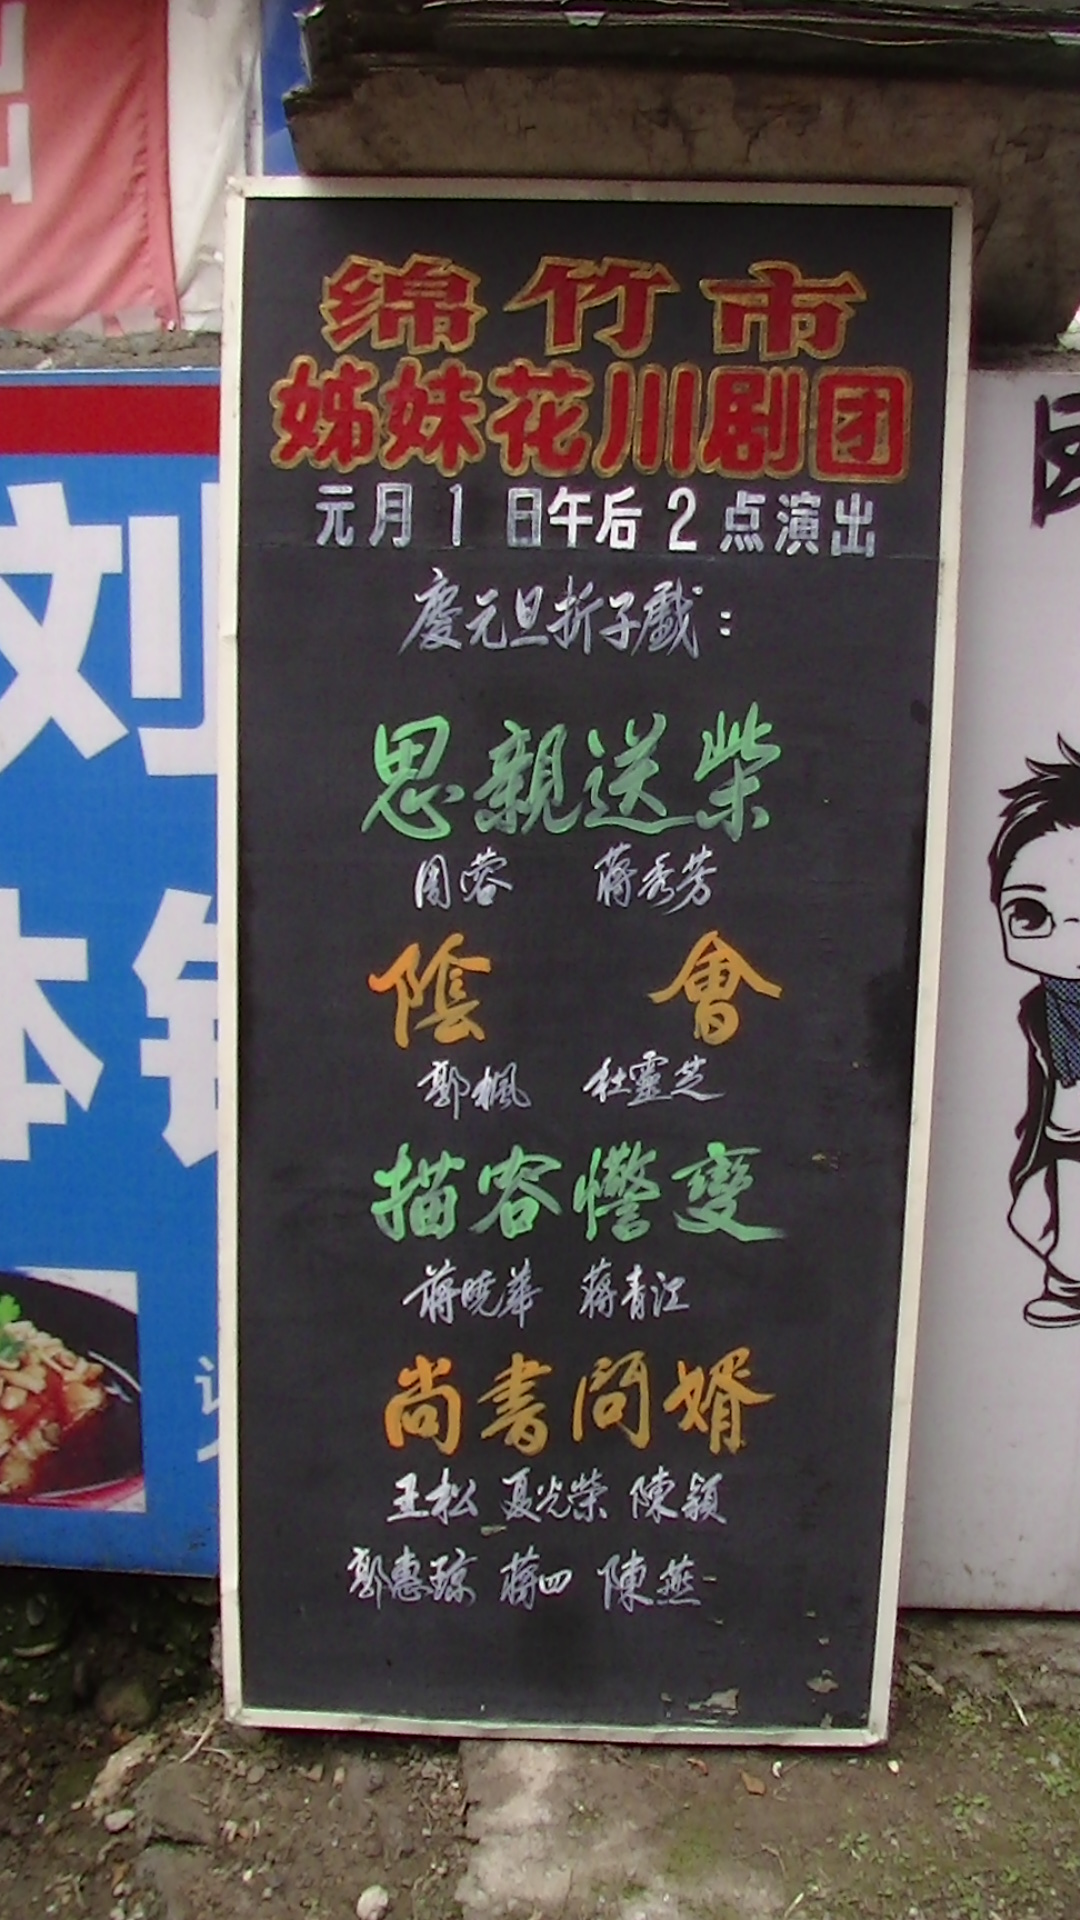 绵竹市
姊妹花川剧团
元月1日午后2点演出
慶元旦折子戲：
思親送柴
周蓉 蔣秀芳
陰 會
郭楓 杜靈芝
描容 變
蔣曉華 蔣青江
尚書問婿
王松 夏光榮 陳穎
郭惠琼 蔣四 陳燕
刘
体